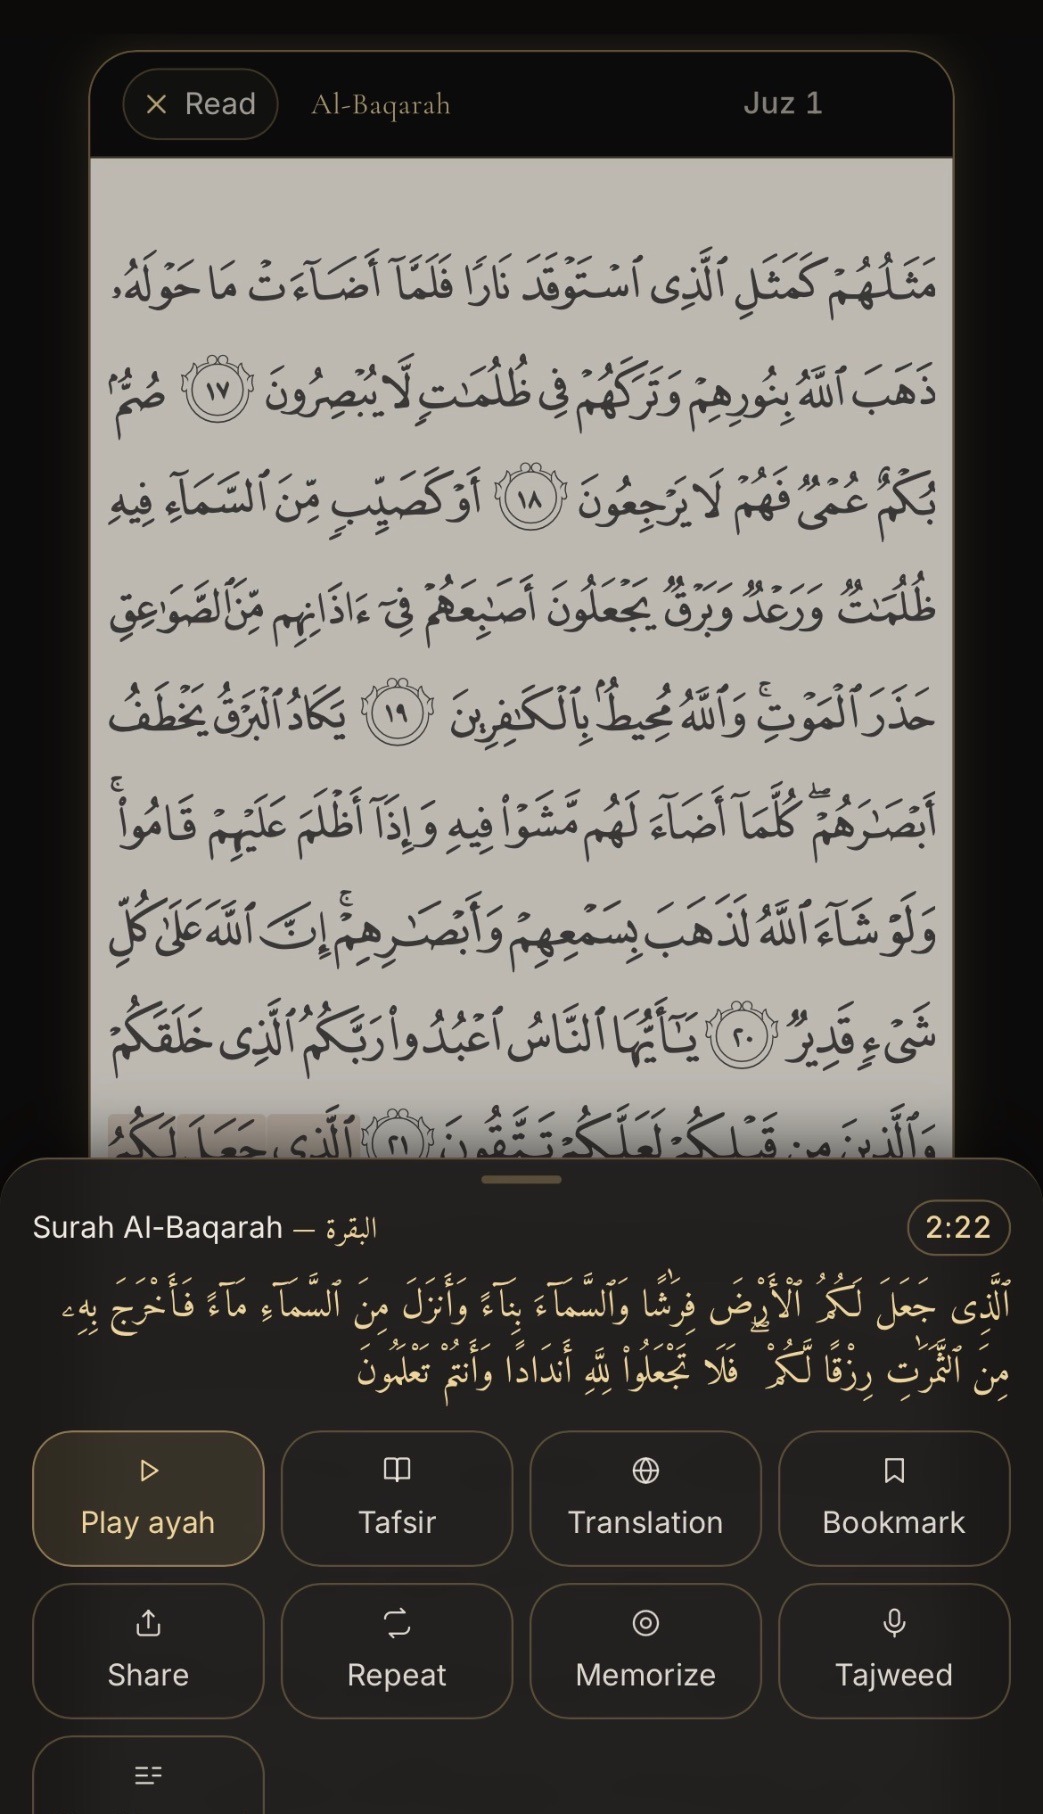 Read
Al-Baqarah
Juz 1
مَثَلُهُمْ كَمَثَلِ ٱلَّذِى ٱسْتَوْقَدَ نَارًا فَلَمَّآ أَضَآءَتْ مَا حَوْلَهُۥ
ذَهَبَ ٱللَّهُ بِنُورِهِمْ وَتَرَكَهُمْ فِى ظُلُمَـٰتٍ لَّا يُبْصِرُونَ ١٧ صُمٌّۢ
بُكْمٌ عُمْىٌ فَهُمْ لَا يَرْجِعُونَ ١٨ أَوْ كَصَيِّبٍ مِّنَ ٱلسَّمَآءِ فِيهِ
ظُلُمَـٰتٌ وَرَعْدٌ وَبَرْقٌ يَجْعَلُونَ أَصَـٰبِعَهُمْ فِىٓ ءَاذَانِهِم مِّنَ ٱلصَّوَٰعِقِ
حَذَرَ ٱلْمَوْتِ ۚ وَٱللَّهُ مُحِيطٌۢ بِٱلْكَـٰفِرِينَ ١٩ يَكَادُ ٱلْبَرْقُ يَخْطَفُ
أَبْصَـٰرَهُمْ ۖ كُلَّمَآ أَضَآءَ لَهُم مَّشَوْا۟ فِيهِ وَإِذَآ أَظْلَمَ عَلَيْهِمْ قَامُوا۟ ۚ
وَلَوْ شَآءَ ٱللَّهُ لَذَهَبَ بِسَمْعِهِمْ وَأَبْصَـٰرِهِمْ ۚ إِنَّ ٱللَّهَ عَلَىٰ كُلِّ
شَىْءٍ قَدِيرٌ ٢٠ يَـٰٓأَيُّهَا ٱلنَّاسُ ٱعْبُدُوا۟ رَبَّكُمُ ٱلَّذِى خَلَقَكُمْ
وَٱلَّذِينَ مِن قَبْلِكُمْ لَعَلَّكُمْ تَتَّقُونَ ٢١ ٱلَّذِى جَعَلَ لَكُمُ
Surah Al-Baqarah — البقرة
2:22
ٱلَّذِى جَعَلَ لَكُمُ ٱلْأَرْضَ فِرَٰشًا وَٱلسَّمَآءَ بِنَآءً وَأَنزَلَ مِنَ ٱلسَّمَآءِ مَآءً فَأَخْرَجَ بِهِۦ
مِنَ ٱلثَّمَرَٰتِ رِزْقًا لَّكُمْ ۖ فَلَا تَجْعَلُوا۟ لِلَّهِ أَندَادًا وَأَنتُمْ تَعْلَمُونَ
Play ayah
Tafsir
Translation
Bookmark
Share
Repeat
Memorize
Tajweed